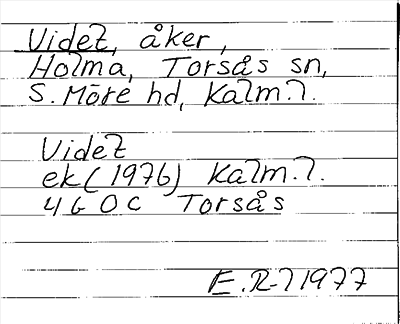 Videt, åker,
Holma, Torsås sn,
S. Möre hd, Kalm. l.
Videt
ek (1976) Kalm. l.
4G 0c Torsås
E. R-l 1977